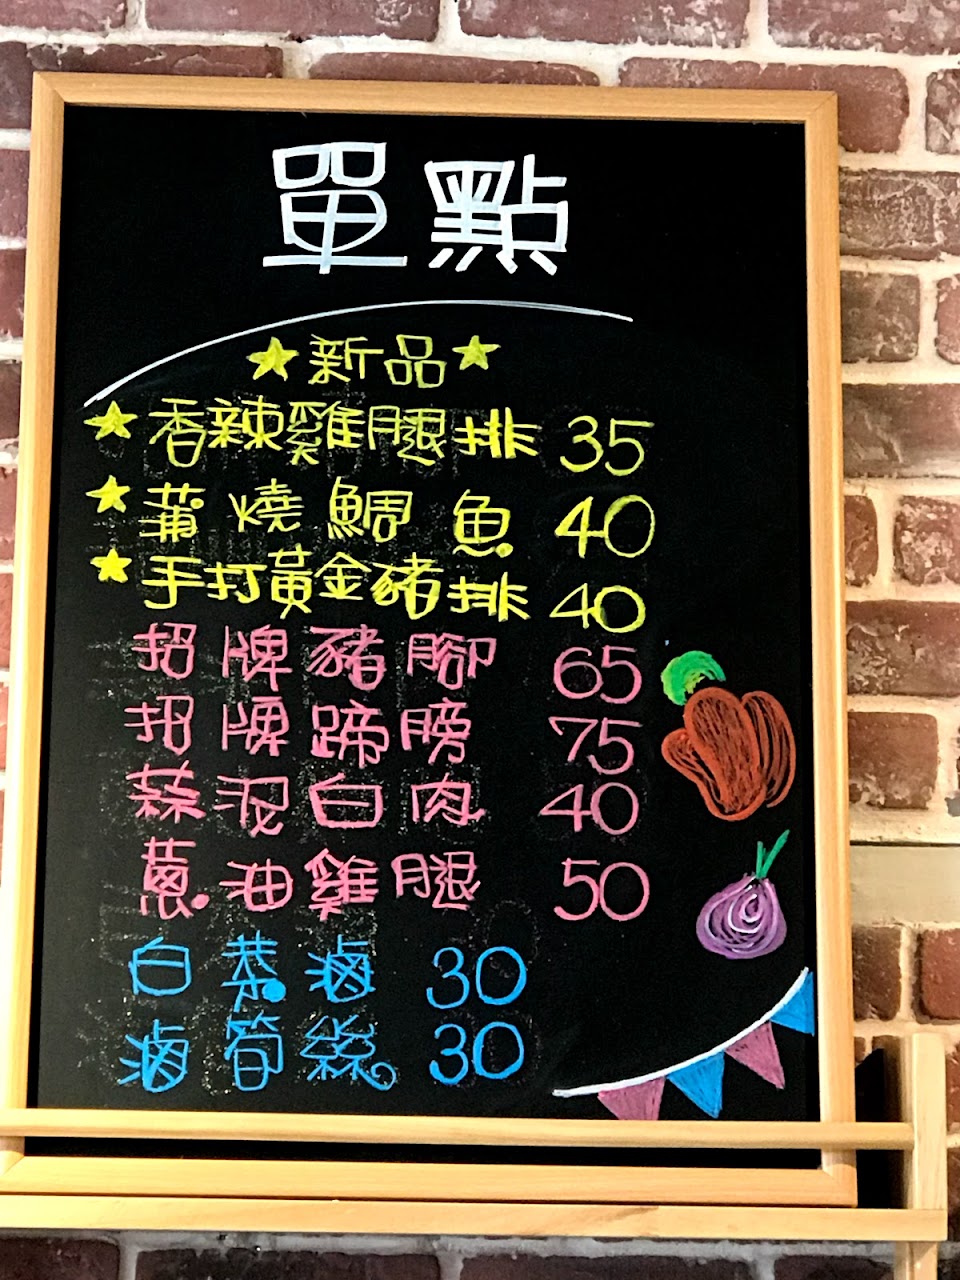 單點
★新品★
★香辣雞腿排 35
★蒲燒鯛魚 40
★手打黃金豬排 40
招牌豬腳 65
招牌蹄膀 75
蒜泥白肉 40
蔥油雞腿 50
白菜滷 30
滷筍絲 30